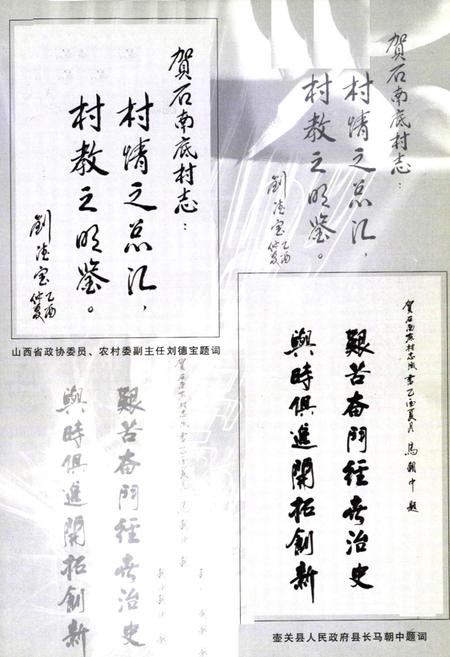 贺石南底村志：
村情之总汇，
村教之明鉴。
刘德宝
乙酉仲夏
山西省政协委员、农村委副主任刘德宝题词
賀石南底村志：
村情之总汇，
村教之明鉴。
刘德宝
乙酉仲夏
賀石南底村志成書乙酉夏月 馬朝中題
艱苦奮鬥經喪治史
與時俱進開拓創新
壶关县人民政府县长马朝中题词
艱苦奮鬥
治史
與時俱進開拓創新